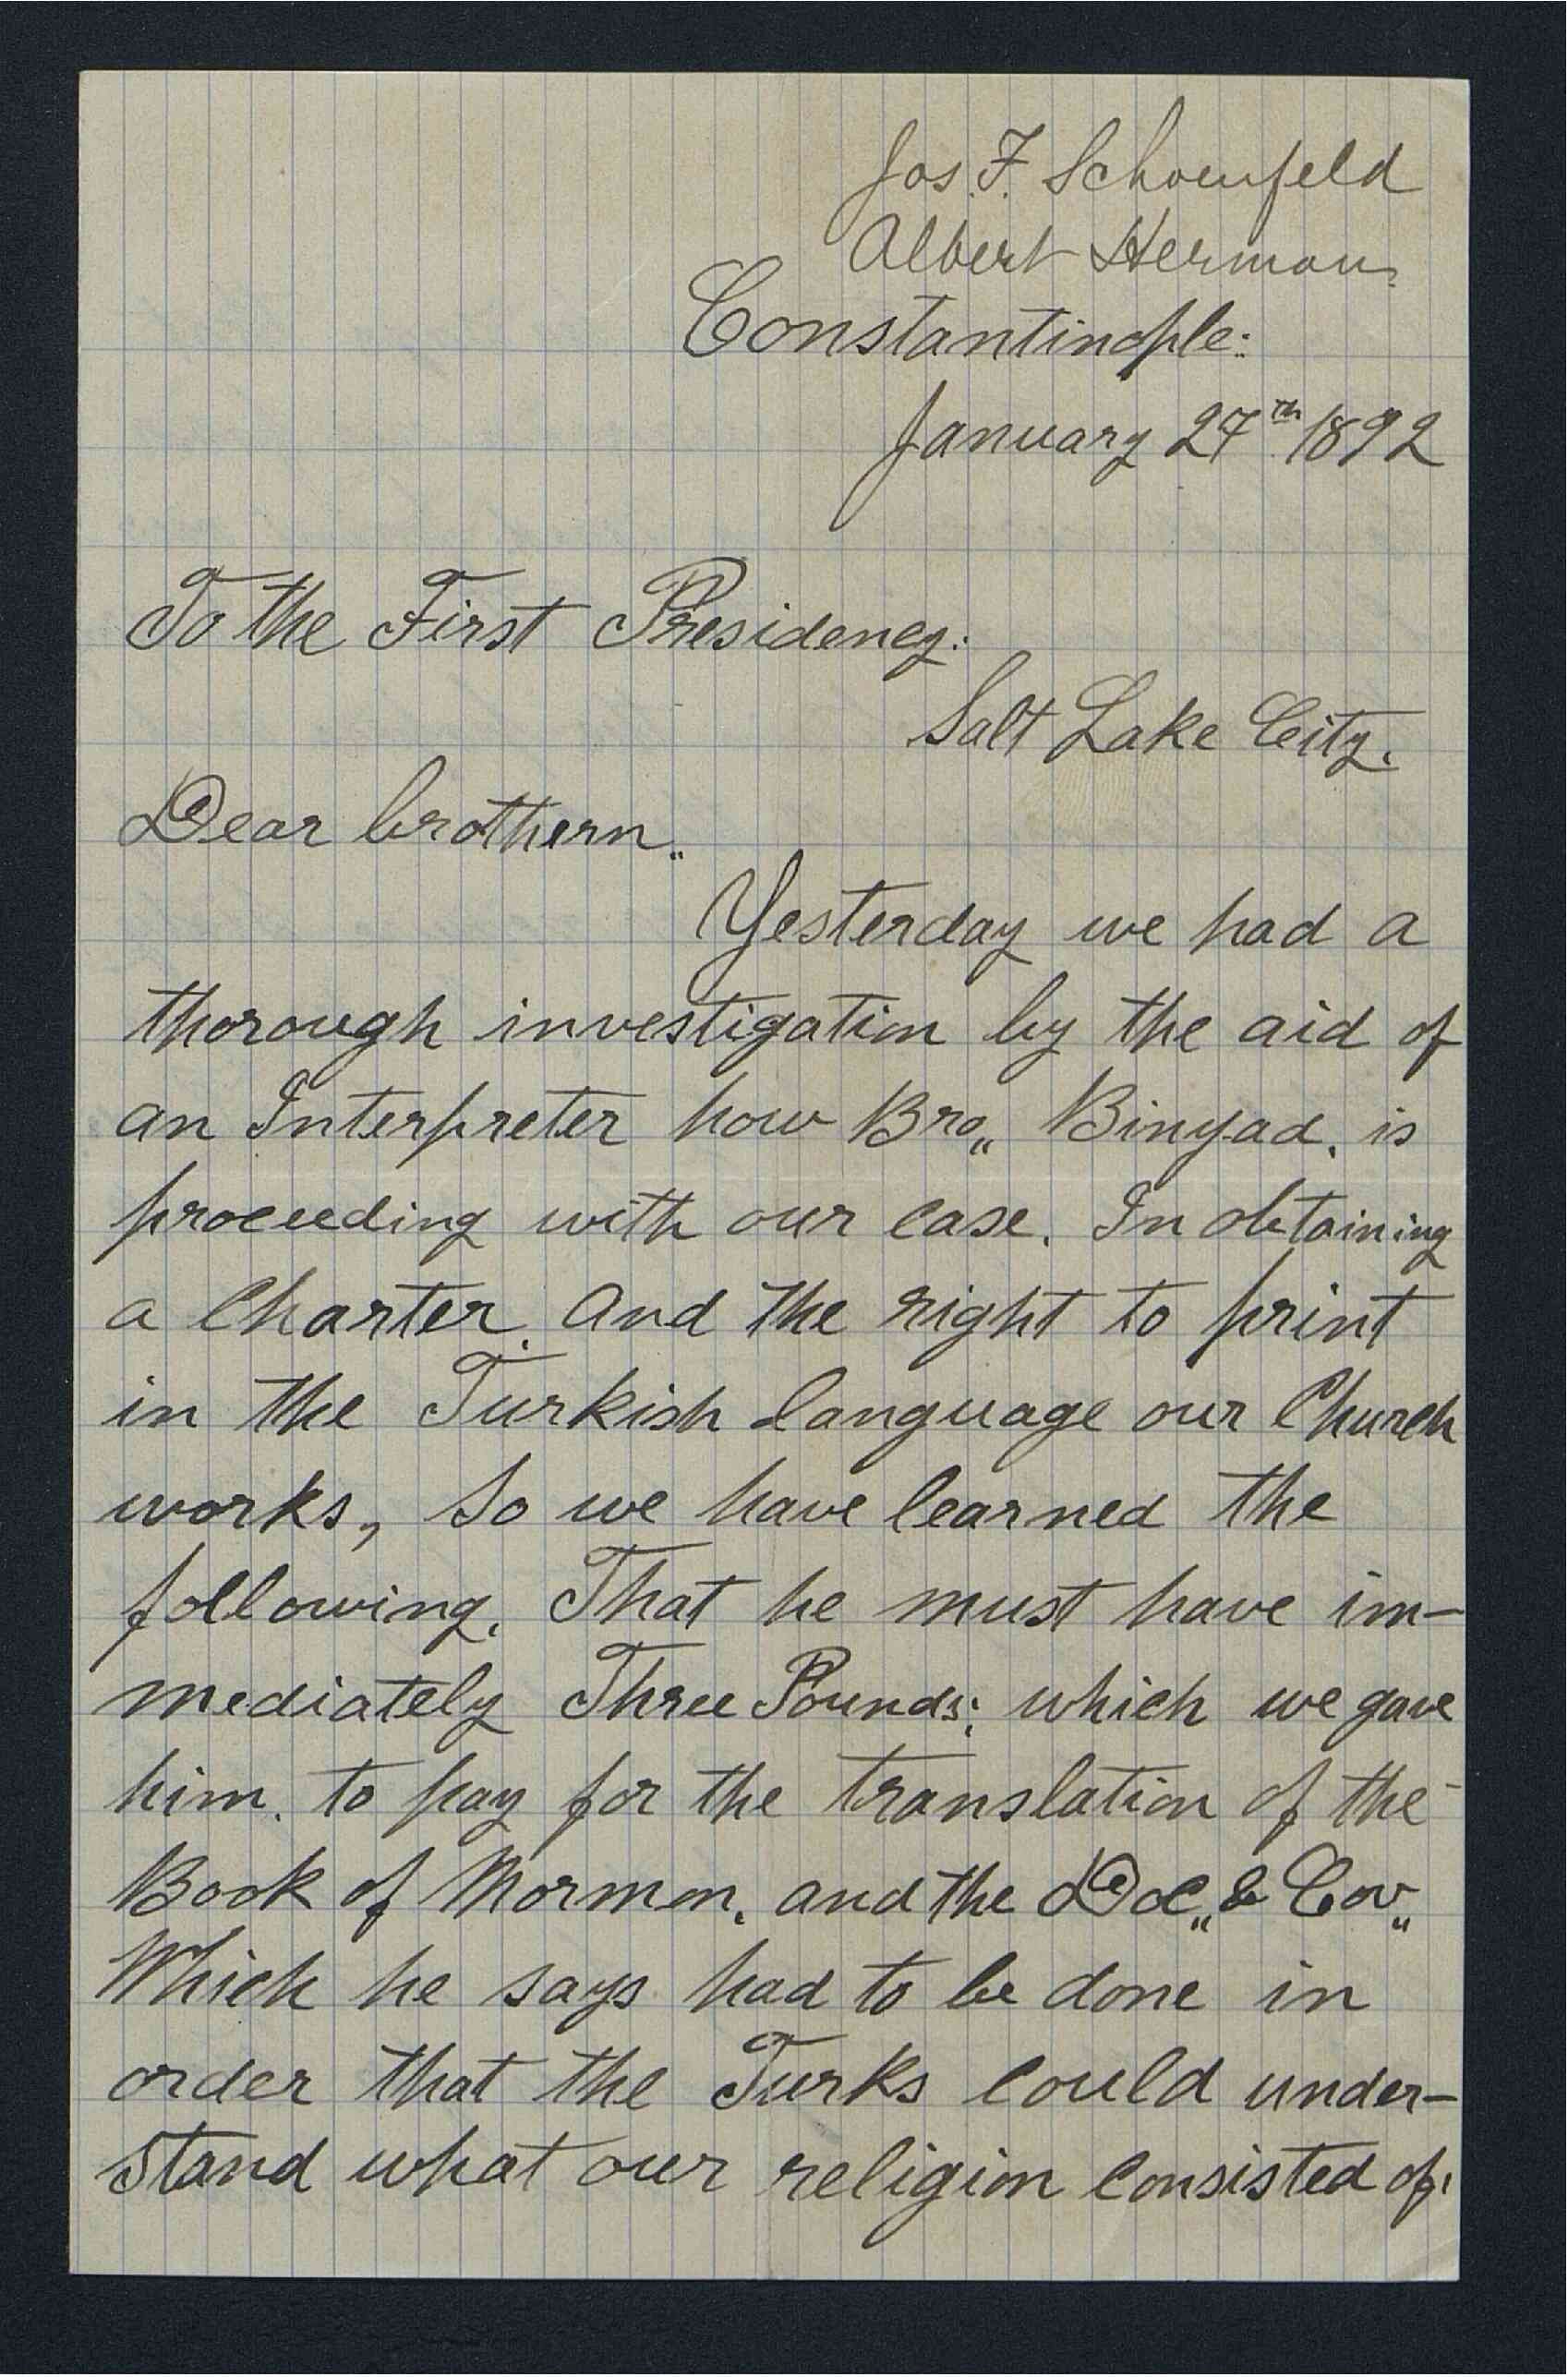 Jos. F. Schoenfeld
Albert Herman
Constantinople:
January 27th 1892
To the First Presidency:
Salt Lake City.
Dear brothern„
Yesterday we had a
thorough investigation by the aid of
an Interpreter how Bro„ Binyad. is
proceeding with our case. In obtaining
a Charter. And the right to print
in the Turkish language our Church
works, So we have learned the
following. That he must have im-
mediately Three Pounds; which we gave
him. to pay for the translation of the
Book of Mormon. and the Doc„ & Cov„
Which he says had to be done in
order that the Turks could under-
stand what our religion consisted of.